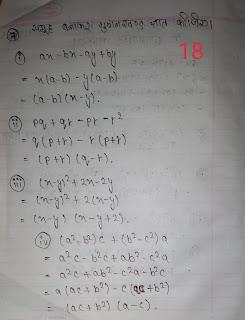 ⑦ समूह बनाकर गुणनखण्ड ज्ञात कीजिए।
18
i) ax - bx - ay + by
= x(a-b) - y(a-b)
= (a-b)(x-y).
ii) pq + qr - pr - r²
= q(p+r) - r(p+r)
= (p+r)(q-r).
iii) (x-y)² + 2x - 2y
= (x-y)² + 2(x-y)
= (x-y)(x-y+2).
iv) (a²-b²)c + (b²-c²)a
= a²c - b²c + ab² - c²a
= a²c + ab² - c²a - b²c
= a(ac+b²) - c(ac+b²)
= (ac+b²)(a-c).